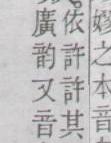 嫪之本音
依許許其
廣韵又音